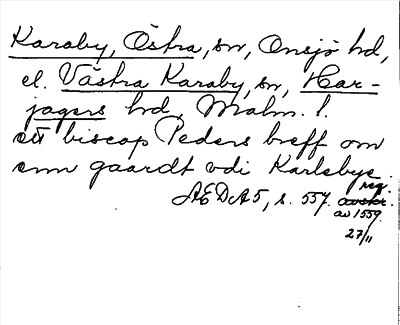 Karaby, Östra, sn, Onsjö hd,
el. Västra Karaby, sn, Har-
jagers hd, Malm. l.
ett biscop Peders breff om
emn gaardt vdi Karlebye.
ÆDA 5, s. 557. avskr. reg.
av 1559.
27/11